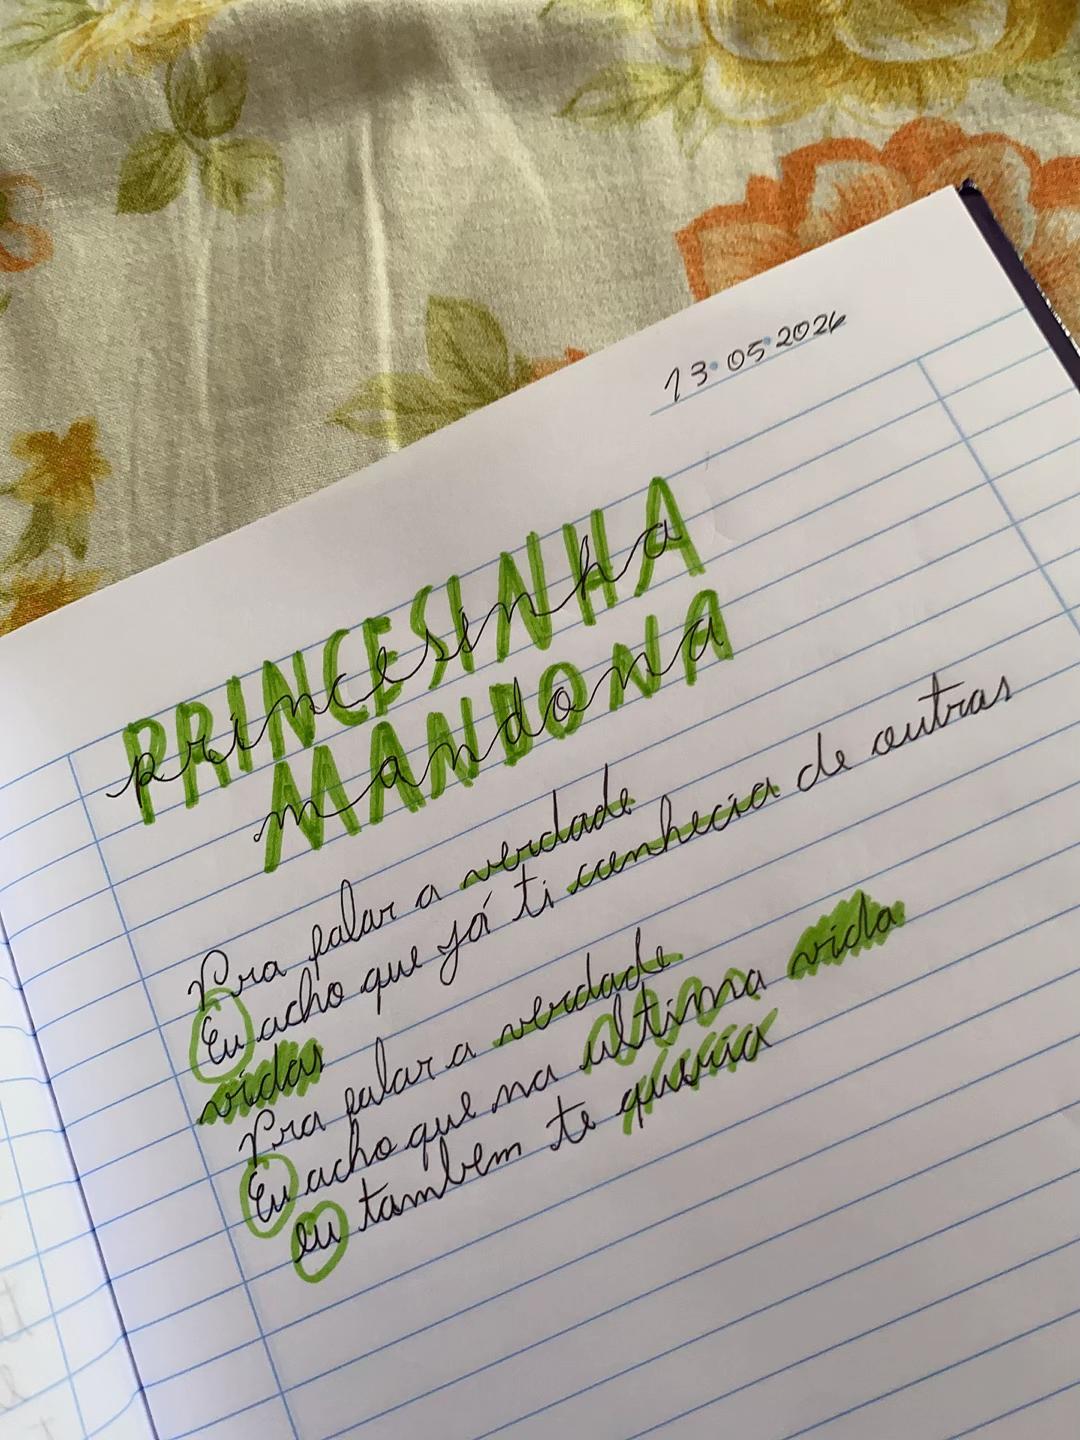 13.05.2026
PRINCESINHA
princesinha
MANDONA
mandona
Pra falar a verdade
Eu acho que já ti conhecia de outras
vidas
Pra falar a verdade
Eu acho que na ultima vida
eu tambem te queria